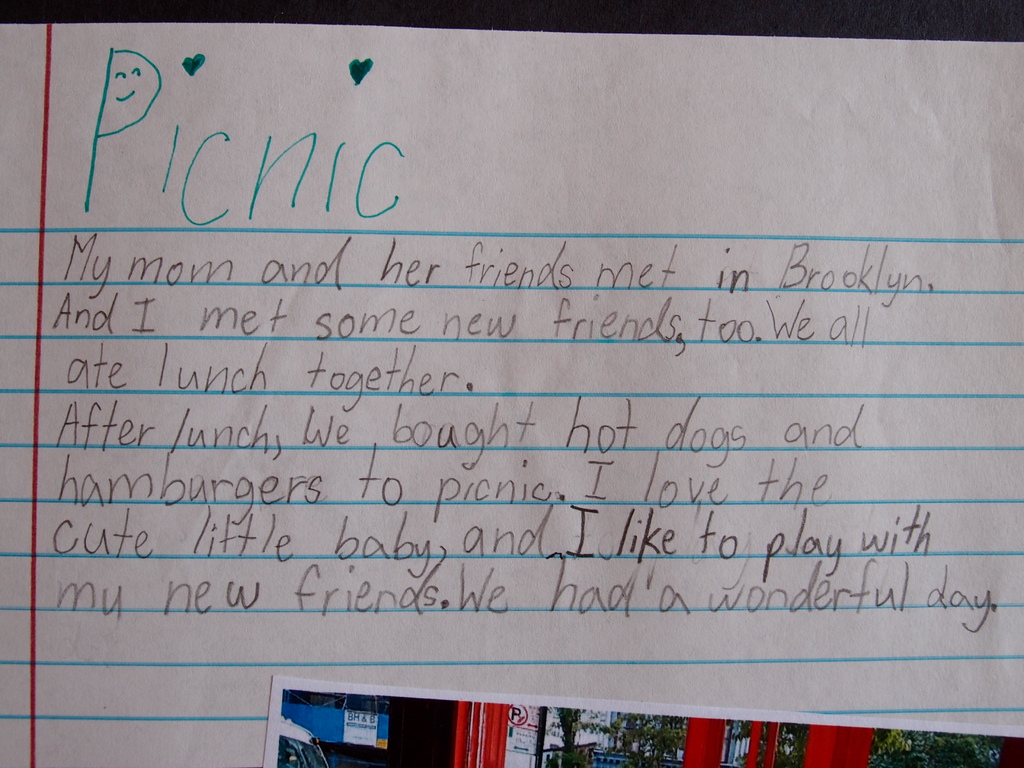 Picnic
My mom and her friends met in Brooklyn.
And I met some new friends, too. We all
ate lunch together.
After lunch, We bought hot dogs and
hamburgers to picnic. I love the
cute little baby, and I like to play with
my new friends. We had a wonderful day.
BH & B
P